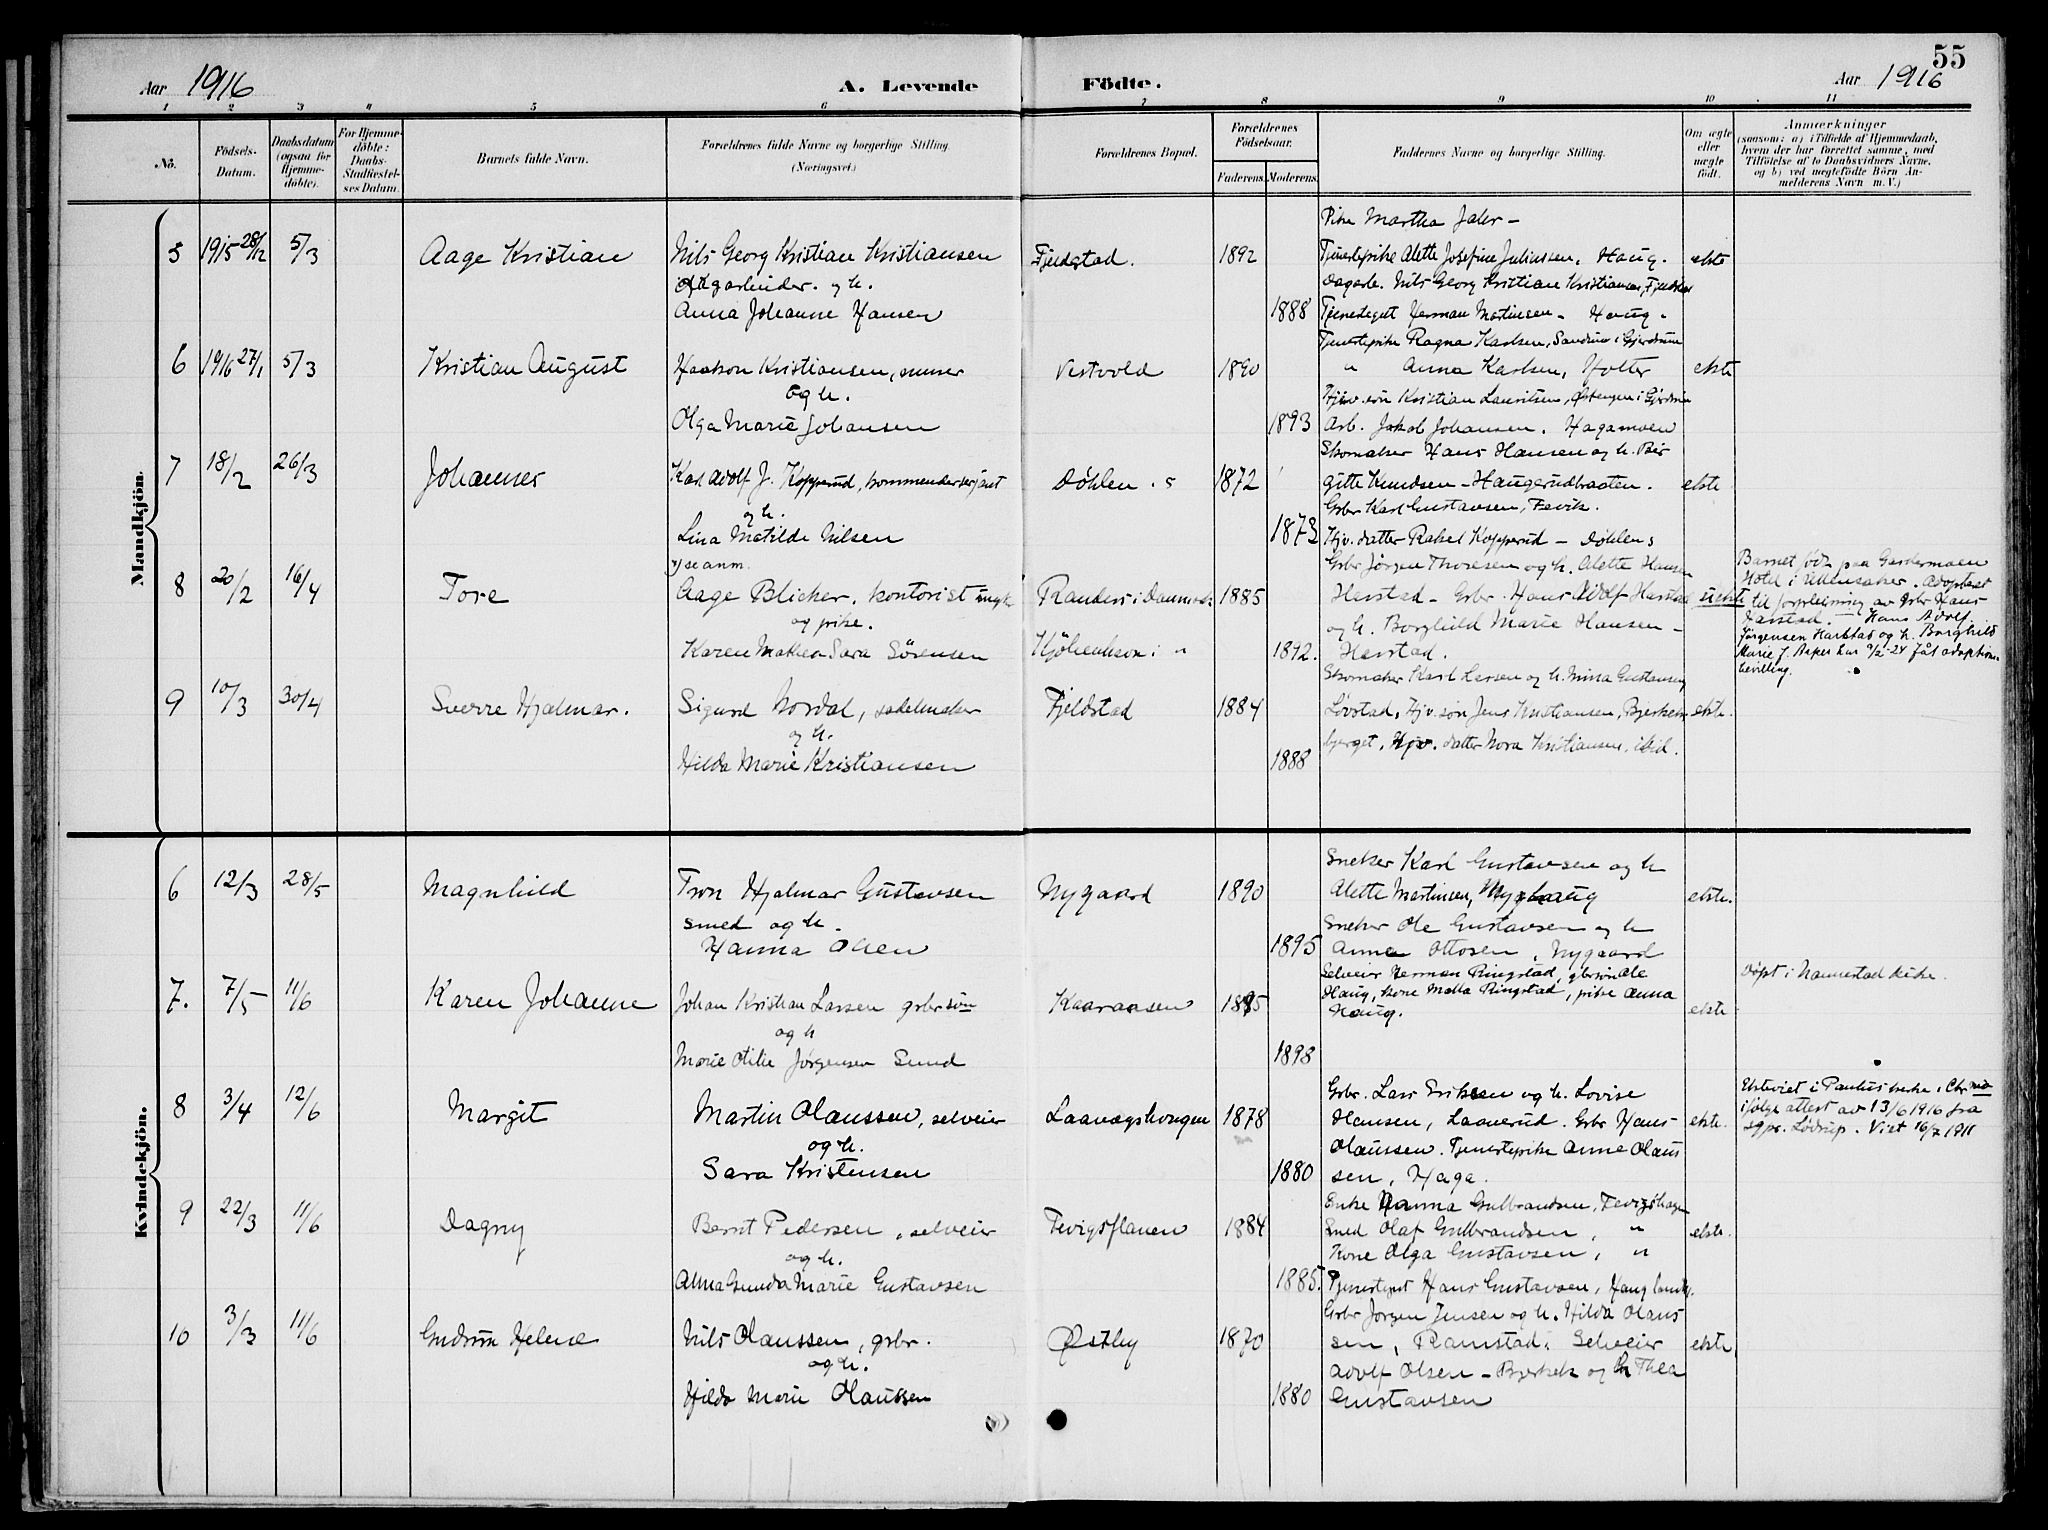 55
Aar 1916
A. Levende Födte.
Aar 1916
1 2 3 4 5 6 7 8 9 10 11
No.
Födsels-Datum.
Daabsdatum (ogsaa for Hjemme-döbte).
For Hjemme-döbte: Daabs-Stadfæstel-ses Datum.
Barnets fulde Navn.
Forældrenes fulde Navne og borgerlige Stilling.
(Næringsvei.)
Forældrenes Bopæl.
Forældrenes Födselsaar.
Faderens. Moderens.
Faddernes Navne og borgerlige Stilling.
Om ægte eller uægte födt.
Anmærkninger
(saasom: a) i Tilfælde af Hjemmedaab,
hvem der har forrettet samme, med
Tilföielse af to Daabsvidners Navne,
og b) ved uægtefödte Börn An-
melderens Navn m. V.)
Mandkjön.
5 1915 28/12 5/3 Aage Kristian
Nils Georg Kristian Kristiansen
dagarbeider. og h.
Anna Johanne Hansen
Fjeldstad. 1892 1888
Pike Martha Jahr –
Tjenestepike Alette Josefine Juliussen, Haug. ekte
Dagarb. Nils Georg Kristian Kristiansen,
Tjenestegut Herman Martinsen – Haug.
6 1916 27/1 5/3 Kristian August
Haakon Kristiansen, murer
og h.
Olga Marie Johansen
Vestvold 1890 1893
Tjenestepike Ragna Karlsen, i Gjerdrum
" Anna Karlsen, Holter ekte
Kristian Lauritsen, i Gjerdrum
Arb. Jakob Johansen. Hagamoen
7 18/2 26/3 Johannes
Karl Adolf J. Kopperud, kommandersersjant
og h.
Lina Matilde Nilsen
Døhlen . s 1872 1873
Skomaker Hans Hansen og h. Bir
gitte Knudsen – Haugerudbraaten. ekte
Gbr Karl Gustavsen, Fevik.
Hjv. datter Rakel Kopperud – Døhlen s
8 20/2 16/4 Tore
se anm.
Aage Blicher, kontorist ungk
og pike.
Karen Mathea Sara Sørensen
Randers i Danmark 1885
Kjøbenhavn i " 1892.
Gbr Jørgen Thoresen og h. Alette Hansen
Harstad – Gbr. Hans Adolf Harstad uekte
og h. Borghild Marie Hansen –
Harstad.
Barnet født paa Gardermoen
Hotel i Ullensaker. Adoptert
til forpleining av Gbr Hans
Harstad. – Hans Adolf
Jørgensen Harstad og h. Borghild
Marie f. har 9/2-24 faat adoptions-
bevilling.
9 10/3 30/4 Sverre Hjalmar.
Sigurd Nordal, sadelmaker
og h.
Hilda Marie Kristiansen
Fjeldstad 1884 1888
Skomaker Karl Larsen og h. Mina Gustavsen
Løvstad, Hjv. søn Jens Kristiansen, Bjerke ekte.
bjerget, Hjv. datter Nora Kristiansen, ibid.
Kvindekjön.
6 12/3 28/5 Magnhild
Tron Hjalmar Gustavsen
smed og h.
Hanna Olsen
Nygaard 1890 1895
Sneker Karl Gustavsen og h
Alette Martinsen, Myrhaug ekte.
Sneker Ole Gustavsen og h
Anna Ottosen, Nygaard
7. 7/5 11/6 Karen Johanne
Johan Kristian Larsen grbr søn
og h
Marie Otilie Jørgensen Sund
Kaaraasen 1895 1898
Selveier Herman Ringstad, gbrsøn Ole
Haug, kone Malla Ringstad, pike Anna
Haug. ekte
Døpt i Nannestad kirke.
8 3/4 12/6 Margit
Martin Olaussen, selveier
og h.
Sara Kristensen
Laavægshougen 1878 1880
Gbr. Lars Eriksen og h. Lovise
Hansen, Laaverud. Gbr Hans ekte.
Olaussen. Tjenestepike Anne Olaus
sen, Haga.
Ikteviet i Paulus kirke i Chr nia
ifølge attest av 13/6 1916 fra
sgpr. Lødrup. Viet 16/7 1911
9 22/3 11/6 Dagny
Bernt Pedersen, selveier
og h.
Anna Gunda Marie Gustavsen
Fevigsflaten 1884 1885.
Enke Hanna Gulbrandsen, Fevigshagen
Smed Olaf Gulbrandsen, " ekte.
Kone Olga Gustavsen, "
Tjenestegut Hans Gustavsen, Haug
10 3/3 11/6 Gudrun Helene
Nils Olaussen, gbr.
og h.
Hilda Marie Olaussen
Østby 1870 1880
Gbr Jørgen Jensen og h. Hilda Olaus
sen, Ramstad. Selveier ekte
Adolf Olsen – Bjerkek og h Thea
Gustavsen